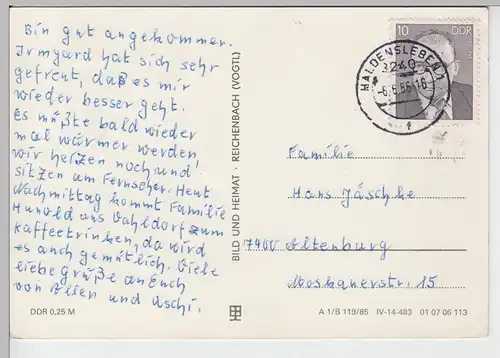 Bin gut angekommen.
Irmgard hat sich sehr
gefreut, daß es mir
wieder besser geht.
Es müßte bald wieder
mal wärmer werden
wir heizen noch und
sitzen am Fernseher. Heut
Nachmittag kommt Familie
Hunold aus Vahldorf zum
Kaffeetrinken, da wird
es auch gemütlich. Viele
liebe Grüße an Euch
von Allen und Uschi.
DDR 0,25 M
BILD UND HEIMAT · REICHENBACH (VOGTL)
10 DDR
HALDENSLEBEN 1
3240
-6.6.86-16
f
Familie
Hans Jäschke
7400 Altenburg
Moskauerstr. 15
A 1/B 119/85 IV-14-483 01 07 06 113